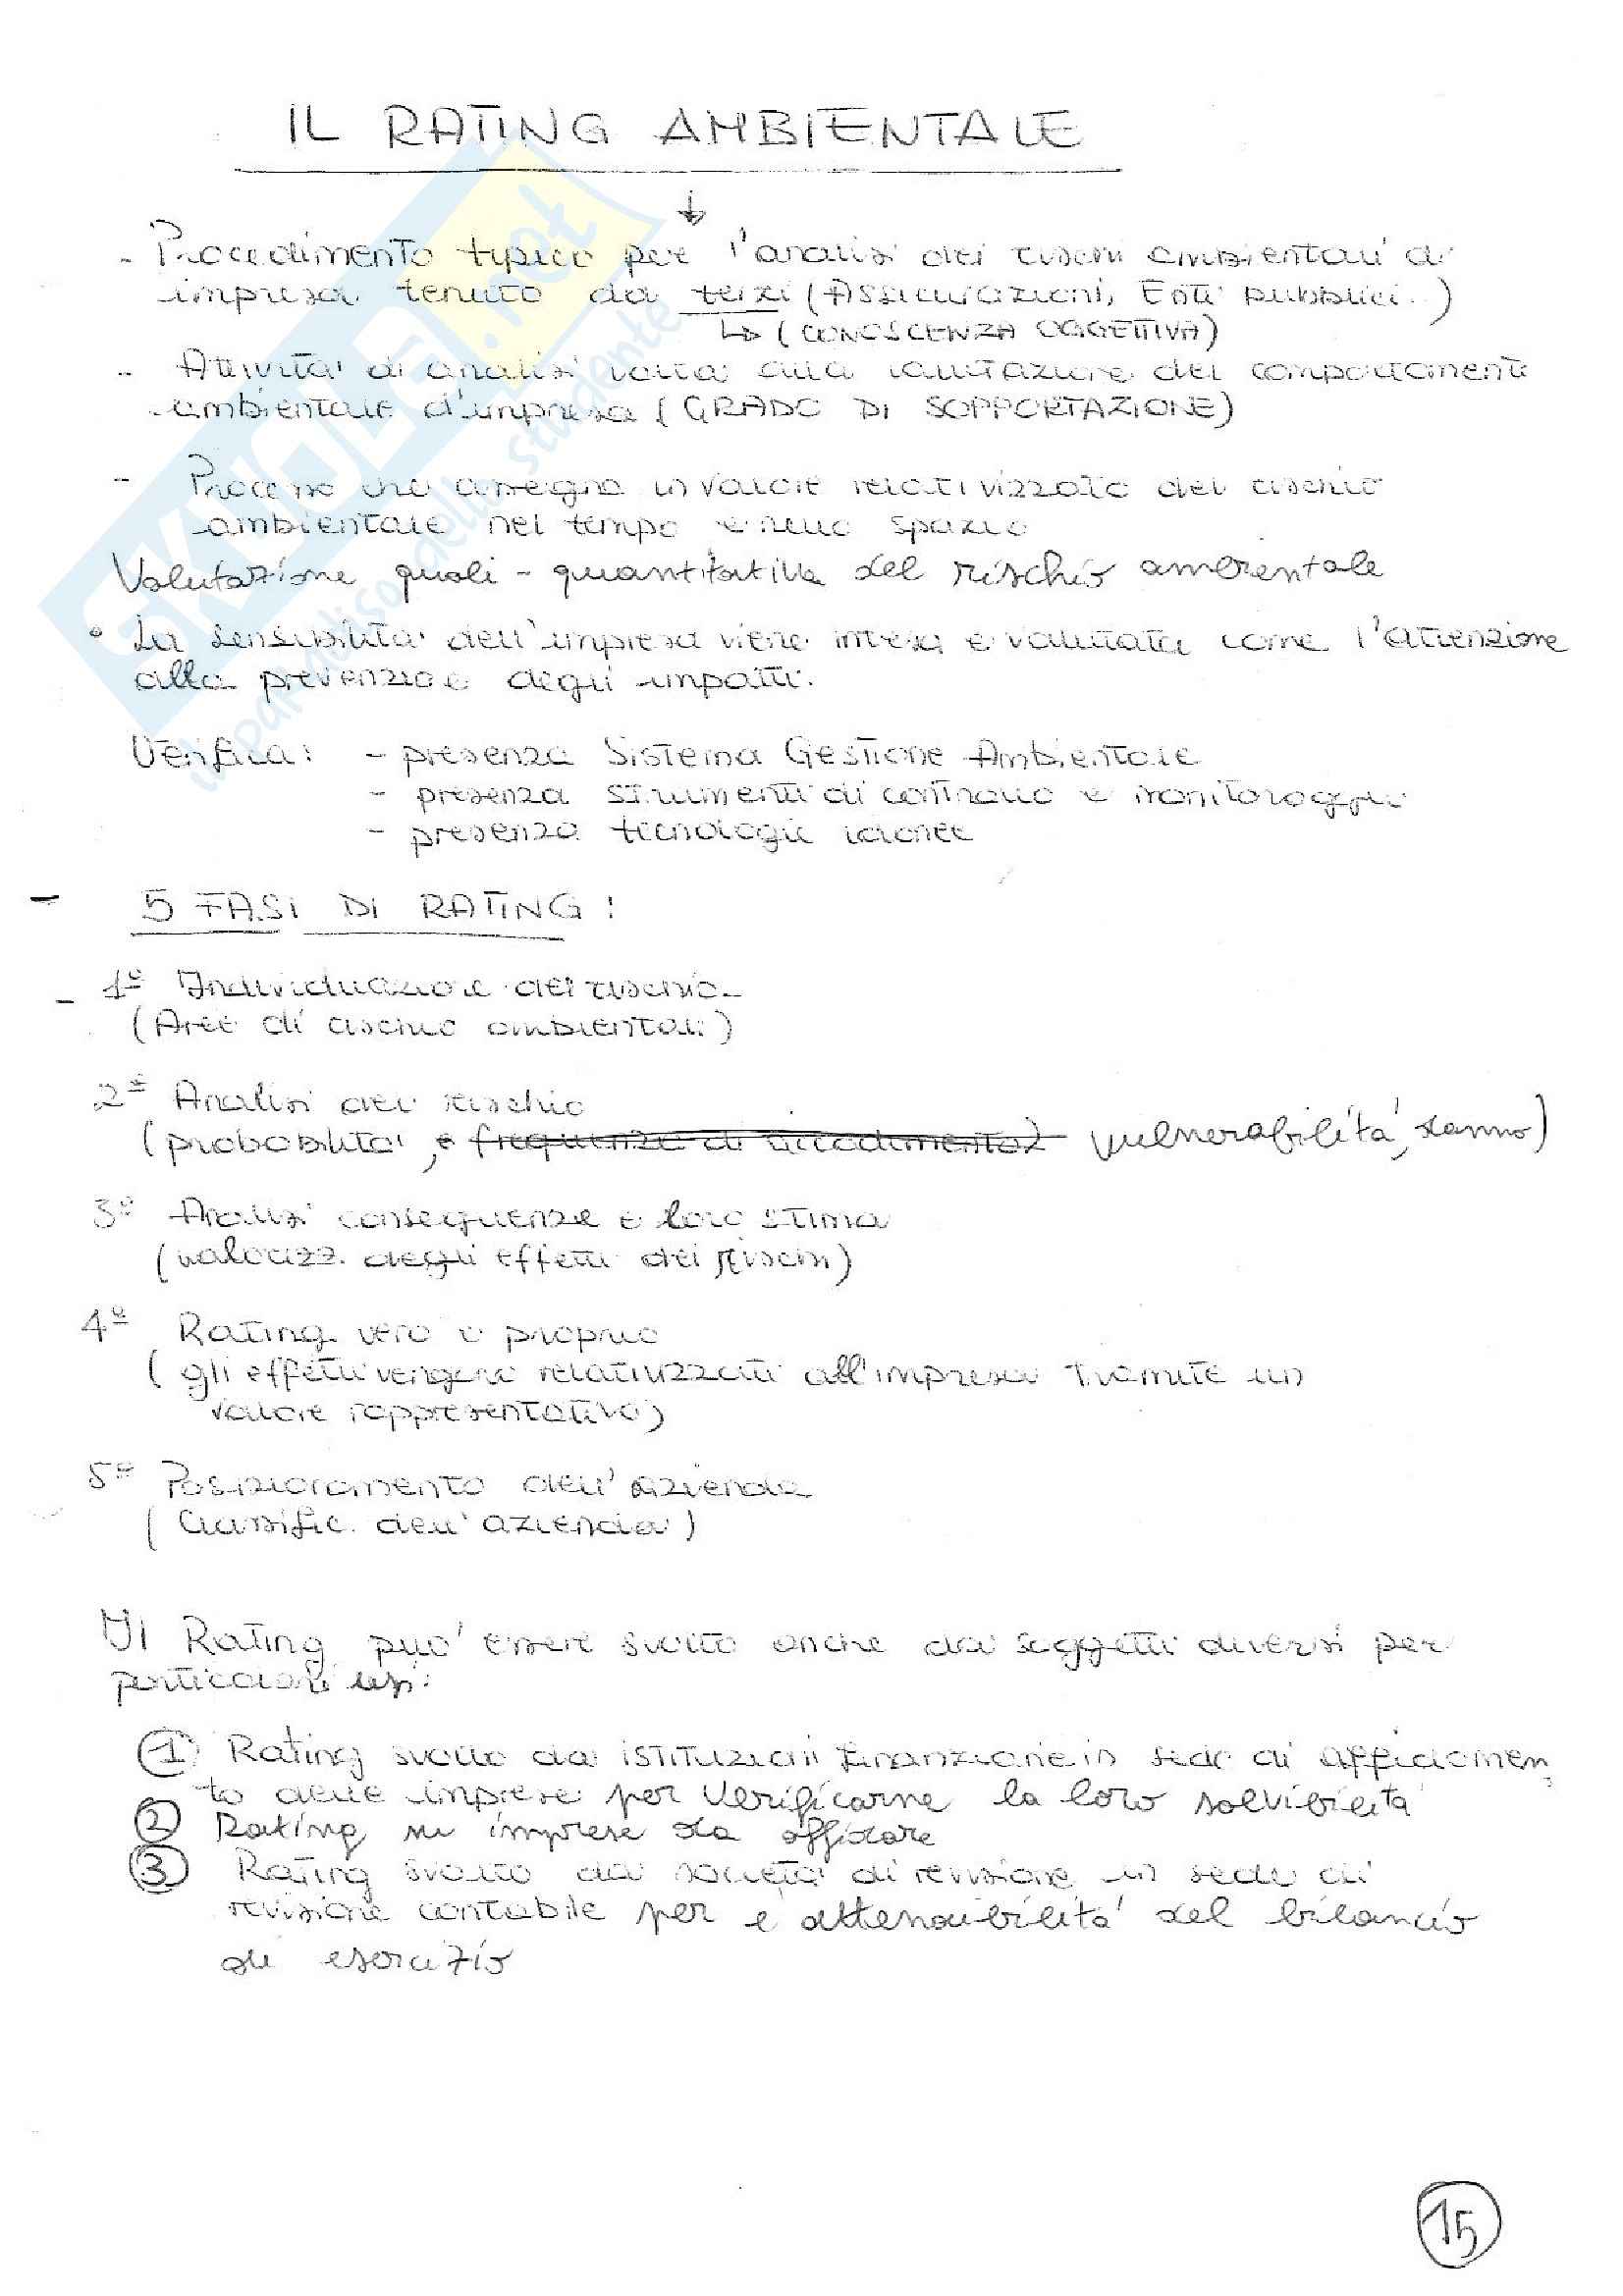 IL RATING AMBIENTALE
- Procedimento tipico per l'analisi dei rischi ambientali di
impresa tenuto da terzi (Assicurazioni, Enti pubblici..)
↳ (CONOSCENZA OGGETTIVA)
- Attivita' di analisi volta alla valutazione del comportamento
ambientale d'impresa (GRADO DI SOPPORTAZIONE)
- Processo che assegna un valore relativizzato del rischio
ambientale nel tempo e nello spazio
Valutazione quali-quantitativa del rischio ambientale
• La sensibilita' dell'impresa viene intesa e valutata come l'attenzione
alla prevenzione degli impatti.
Verifica: - presenza Sistema Gestione Ambientale
- presenza strumenti di controllo e monitoraggio
- presenza tecnologie idonee
- 5 FASI DI RATING:
- 1° Individuazione del rischio
(Aree di rischio ambientali)
2° Analisi del rischio
(probabilita', e frequenza di accadimento) vulnerabilita', danno)
3° Analisi conseguenze e loro stima
(valorizz. degli effetti dei rischi)
4° Rating vero e proprio
(gli effetti vengono relativizzati all'impresa tramite un
valore rappresentativo)
5° Posizionamento dell'azienda
(Classific. dell'azienda)
Il Rating puo' essere svolto anche da soggetti diversi per
particolari usi:
1 Rating svolto da istituzioni finanziarie in sede di affidamen
to delle imprese per verificarne la loro solvibilita'
2 Rating su imprese da affidare
3 Rating svolto da societa' di revisione in sede di
revisione contabile per l'attendibilita' del bilancio
di esercizio
15
SKUOLA.net
il paradiso dello studente